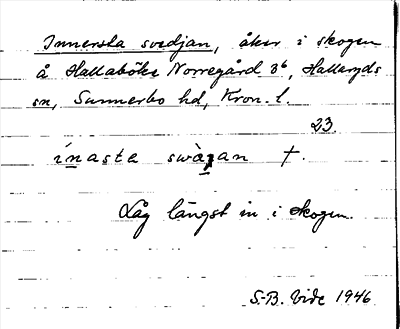 Innersta svedjan, åker i skogen
å Hallaböke Norregård 3⁶, Hallaryds
sn, Sunnerbo hd, Kron. l.
23.
inasta swàɟan †.
Låg längst in i skogen.
S-B. Vide 1946